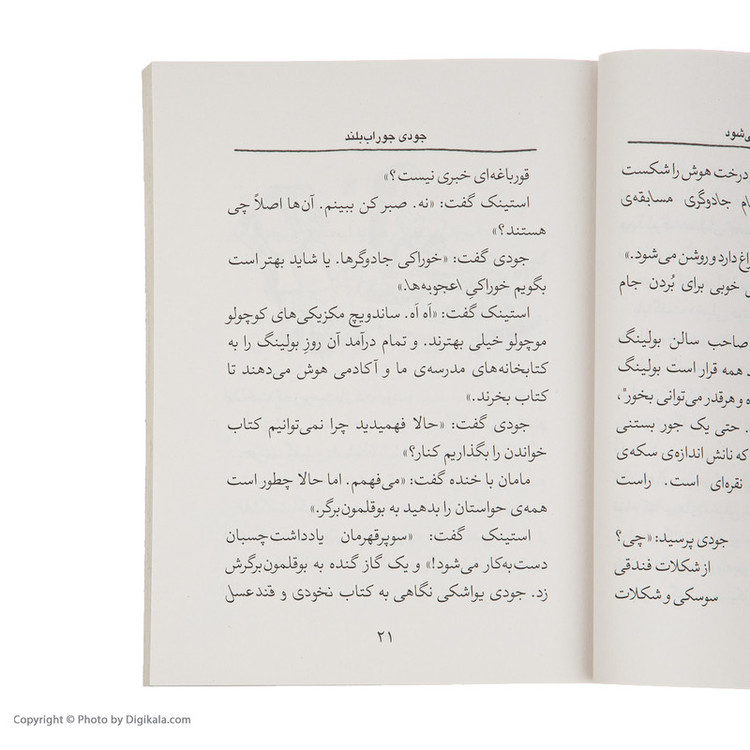 ی‌شود
درخت هوش را شکست
ام جادوگری مسابقه‌ی
راغ دارد و روشن می‌شود.»
خوبی برای بُردن جام
صاحب سالن بولینگ
همه قرار است بولینگ
ه و هرقدر می‌توانی بخور"،
. حتی یک جور بستنی
که نانش اندازه‌ی سکه‌ی
نقره‌ای است. راست
جودی پرسید: «چی؟
از شکلات فندقی
سوسکی و شکلات
جودی جوراب‌بلند
قورباغه‌ای خبری نیست؟»
استینک گفت: «نه. صبر کن ببینم. آن‌ها اصلاً چی
هستند؟»
جودی گفت: «خوراکی جادوگرها. یا شاید بهتر است
بگویم خوراکیِ \اعجوبه‌ها\.»
استینک گفت: «اَه اَه. ساندویچ مکزیکی‌های کوچولو
موچولو خیلی بهترند. و تمام درآمد آن روزِ بولینگ را به
کتابخانه‌های مدرسه‌ی ما و آکادمی هوش می‌دهند تا
کتاب بخرند.»
جودی گفت: «حالا فهمیدید چرا نمی‌توانیم کتاب
خواندن را بگذاریم کنار؟»
مامان با خنده گفت: «می‌فهمم. اما حالا چطور است
همه‌ی حواستان را بدهید به بوقلمون‌برگر.»
استینک گفت: «سوپرقهرمان یادداشت‌چسبان
دست‌به‌کار می‌شود!» و یک گاز گنده به بوقلمون‌برگرش
زد. جودی یواشکی نگاهی به کتاب نخودی و قندعسل
۲۱
Copyright © Photo by Digikala.com